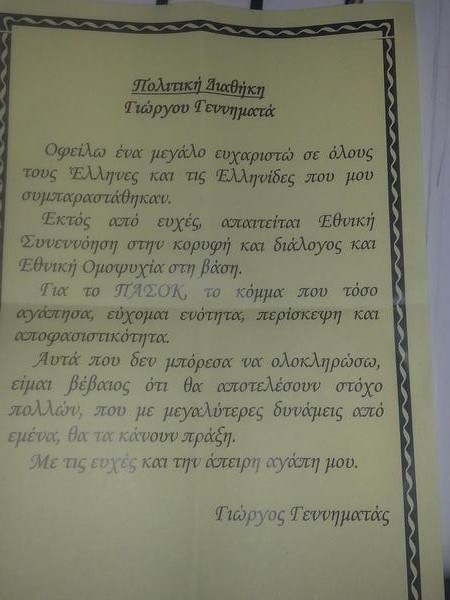 Πολιτική Διαθήκη
Γιώργου Γεννηματά
Οφείλω ένα μεγάλο ευχαριστώ σε όλους
τους Έλληνες και τις Ελληνίδες που μου
συμπαραστάθηκαν.
Εκτός από ευχές, απαιτείται Εθνική
Συνεννόηση στην κορυφή και διάλογος και
Εθνική Ομοψυχία στη βάση.
Για το ΠΑΣΟΚ, το κόμμα που τόσο
αγάπησα, εύχομαι ενότητα, περίσκεψη και
αποφασιστικότητα.
Αυτά που δεν μπόρεσα να ολοκληρώσω,
είμαι βέβαιος ότι θα αποτελέσουν στόχο
πολλών, που με μεγαλύτερες δυνάμεις από
εμένα, θα τα κάνουν πράξη.
Με τις ευχές και την άπειρη αγάπη μου.
Γιώργος Γεννηματάς